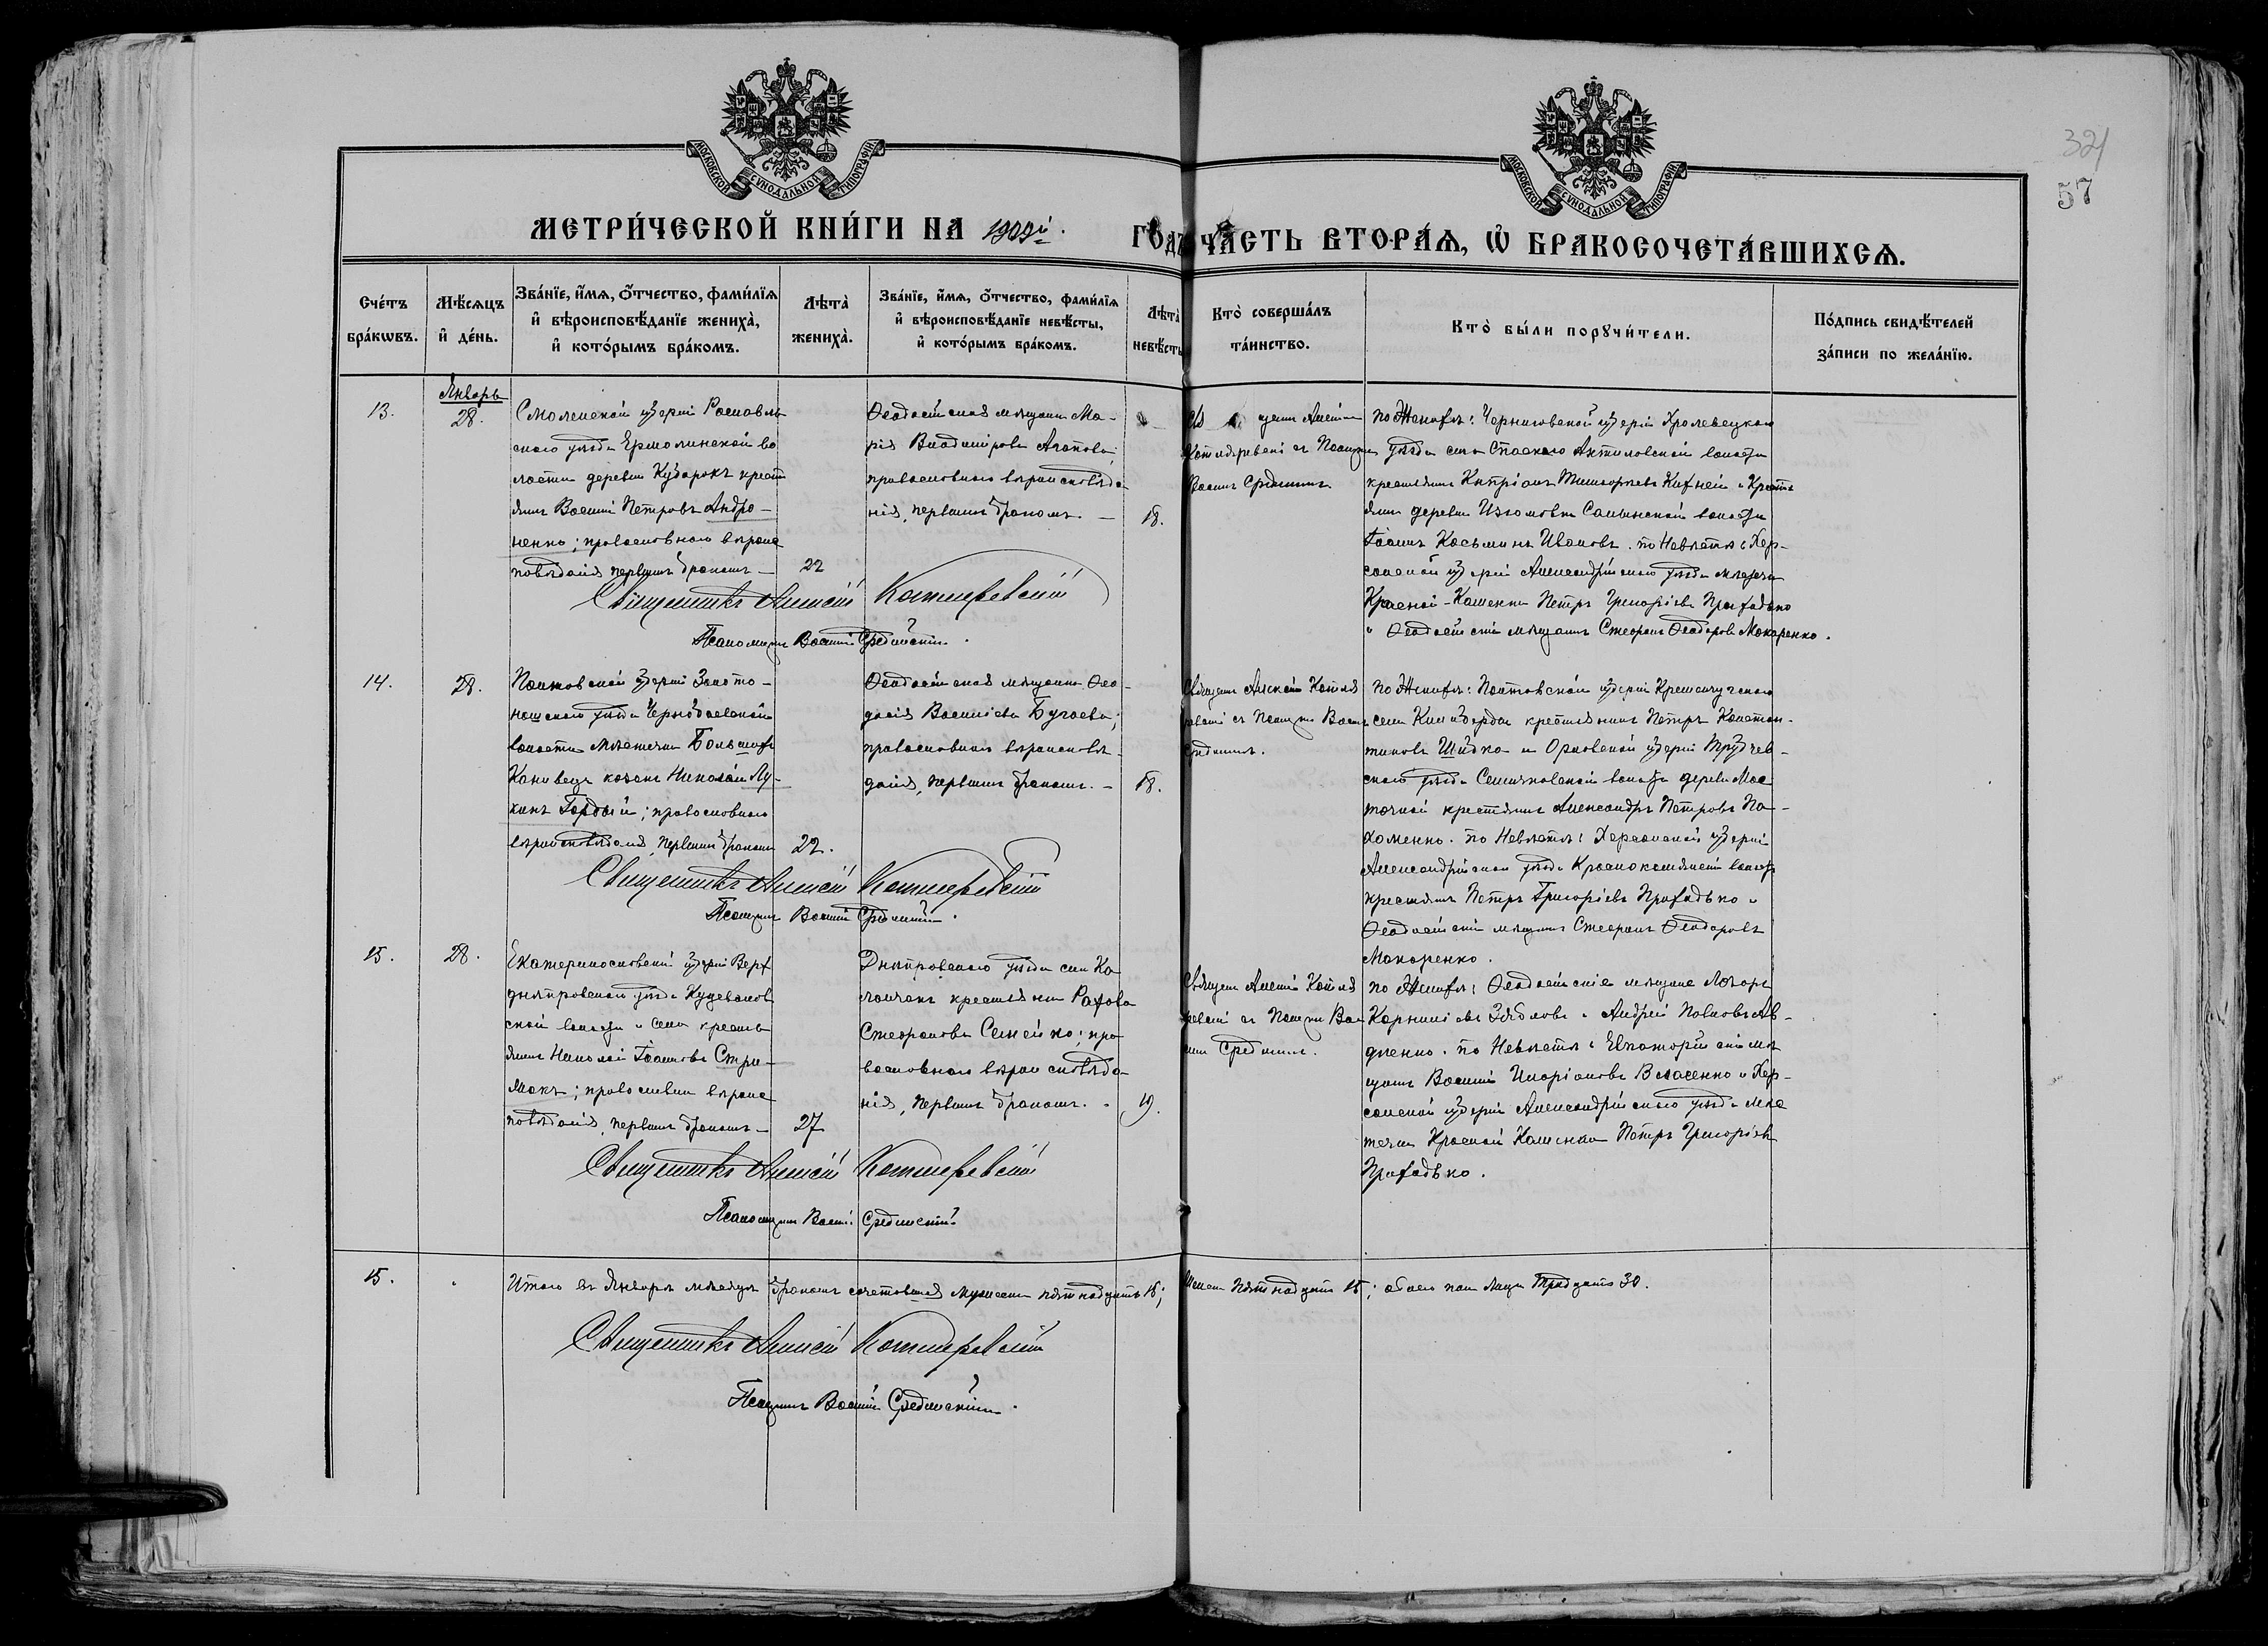 321
57
МОСКОВСКОЙ СѴНОДАЛЬНОЙ ТИПОГРАФІИ
МОСКОВСКОЙ СѴНОДАЛЬНОЙ ТИПОГРАФІИ
МЕТРИ́ЧЕСКОЙ КНИ́ГИ НА 1909й. ГО́ДЪ ЧА́СТЬ ВТОРА́Ѧ, Ѡ҆ БРАКОСОЧЕТА́ВШИХСѦ.
Сче́тъ бра́кѡвъ.
Мѣ́сѧцъ и҆ де́нь.
Зва́нїе, и҆́мѧ, ѻ҆́тчество, фами́лїѧ и҆ вѣроисповѣ́данїе жениха̀, и҆ кото́рымъ бра́комъ.
Лѣта̀ жениха̀.
Зва́нїе, и҆́мѧ, ѻ҆́тчество, фами́лїѧ и҆ вѣроисповѣ́данїе невѣ́сты, и҆ кото́рымъ бра́комъ.
Лѣта̀ невѣ́сты
Кто̀ соверша́лъ та́инство.
Кто̀ бы́ли порꙋчи́тели.
По́дпись свидѣ́телей за́писи по жела́нїю.
Январь
13.
28.
Смоленской губерніи Рославль-
скаго уѣзда Ермолинской во
лости деревни
крест
янинъ Василій Петровъ Андро-
ненко; православнаго вѣроис
повѣданія первымъ бракомъ —
22
Ѳеодосійская мѣщанка Ма-
рія Владимірова
православнаго вѣроисповѣда
нія, первымъ бракомъ. —
18.
Алексій
Котляревскій съ Псаломщ
Василіемъ
по Женихѣ: Черниговской губерніи Кролевецкаго
уѣзда села Спаскаго волости
крестьянинъ Кипріанъ и Кресть
янинъ деревни волости
Іоаннъ Косьминъ Ивановъ. по Невѣстѣ: Хер-
сонской губерніи Александрійскаго уѣзда мѣстечка
Красной-Каменки Петръ Григоріевъ Прихадько
и Ѳеодосійскій мѣщанинъ Стефанъ Ѳеодоровъ Макаренко.
Священникъ Алексій Котляревскій
Псаломщикъ Василій Срединскій.
14.
28.
Полтавской губерніи Золото-
ношскаго уѣзда
волости мѣстечка Большой
Канивецъ козакъ Николай Лу-
кинъ Гордый; православнаго
вѣроисповѣданія, первымъ бракомъ
22.
Ѳеодосійская мѣщанка Ѳео-
досія Василіева Бугаева;
православнаго вѣроисповѣ-
данія, первымъ бракомъ. —
18.
Священ Алексій Котля
ревскій съ Псаломщ Васил
по Женихѣ: Полтавской губерніи Кременчугскаго
села крестьянинъ Петръ Констан-
тиновъ Шидко и Орловской губерніи Трубчев-
скаго уѣзда волости деревни
крестьянинъ Александръ Петровъ Па-
хоменко. по Невѣстѣ: Херсонской губерніи
Александрійскаго уѣзда Краснокаменской волости
крестьянинъ Петръ Григоріевъ Прихадько и
Ѳеодосійскій мѣщанинъ Стефанъ Ѳеодоровъ
Макаренко.
Священникъ Алексій Котляревскій
Псаломщикъ Василій Срединскій.
15.
28.
Екатеринославской губерніи Верх
днѣпровскаго уѣзда
ской волости и села кресть
янинъ Николай Іоанновъ Стри-
жакъ; православнаго вѣроис
повѣданія, первымъ бракомъ —
27
Днѣпровскаго уѣзда села Ка
ланчакъ крестьянка
Стефанова Сенейко; пра
вославнаго вѣроисповѣда-
нія, первымъ бракомъ. —
19.
Священ Алексій Котля
ревскій съ Псаломщ Васи
по Женихѣ: Ѳеодосійскіе мѣщане Лазарь
Корниліевъ Зябловъ и Андрій Павловъ Ав-
дѣенко. по Невѣстѣ: Евпаторійскій мѣ
щанинъ Василій Иларіоновъ Власенко и Хер-
сонской губерніи Александрійскаго уѣзда мѣс
течка Красной Каменки Петръ Григоріевъ
Прихадько.
Священникъ Алексій Котляревскій
Псаломщикъ Василій Срединскій
15.
Итого въ Январѣ мѣсяцѣ бракомъ сочетавшихся мужеска пятнадцать 15; женска пятнадцать 15; обоего пола лицъ тридцать 30.
Священникъ Алексій Котляревскій
Псаломщикъ Василій Срединскій.